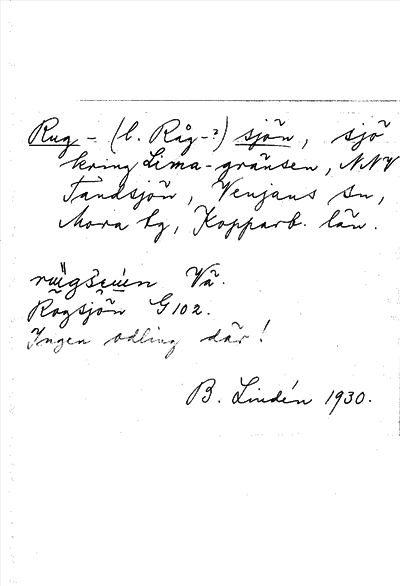 Rug- (l. Råg-?) sjön, sjö
kring Lima-gränsen, NNV
Tandsjön, Venjans sn,
Mora tg, Kopparb. län.
Vä.
Rogsjön G102.
Ingen odling där!
B. Lindén 1930.